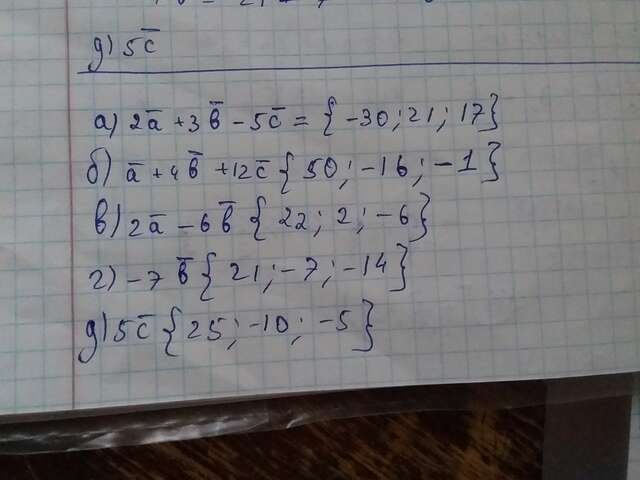 д) 5c̄
а) 2ā + 3b̄ - 5c̄ = {-30; 21; 17}
б) ā + 4b̄ + 12c̄ {50; -16; -1}
в) 2ā - 6b̄ {22; 2; -6}
г) -7b̄ {21; -7; -14}
д) 5c̄ {25; -10; -5}